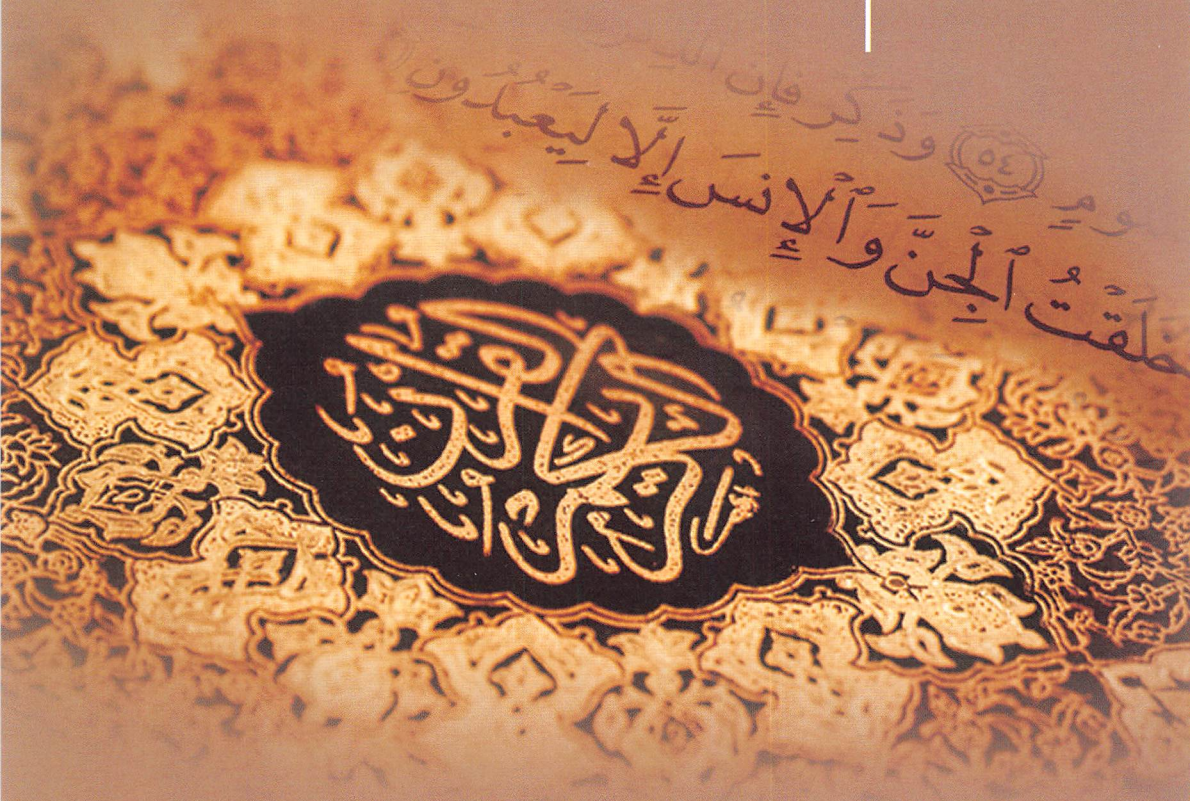 ـومٍ ٥٤ وَذَكِّرْ فَإِنَّ
خَلَقْتُ ٱلْجِنَّ وَٱلْإِنسَ إِلَّا لِيَعْبُدُونِ
القرآن الكريم